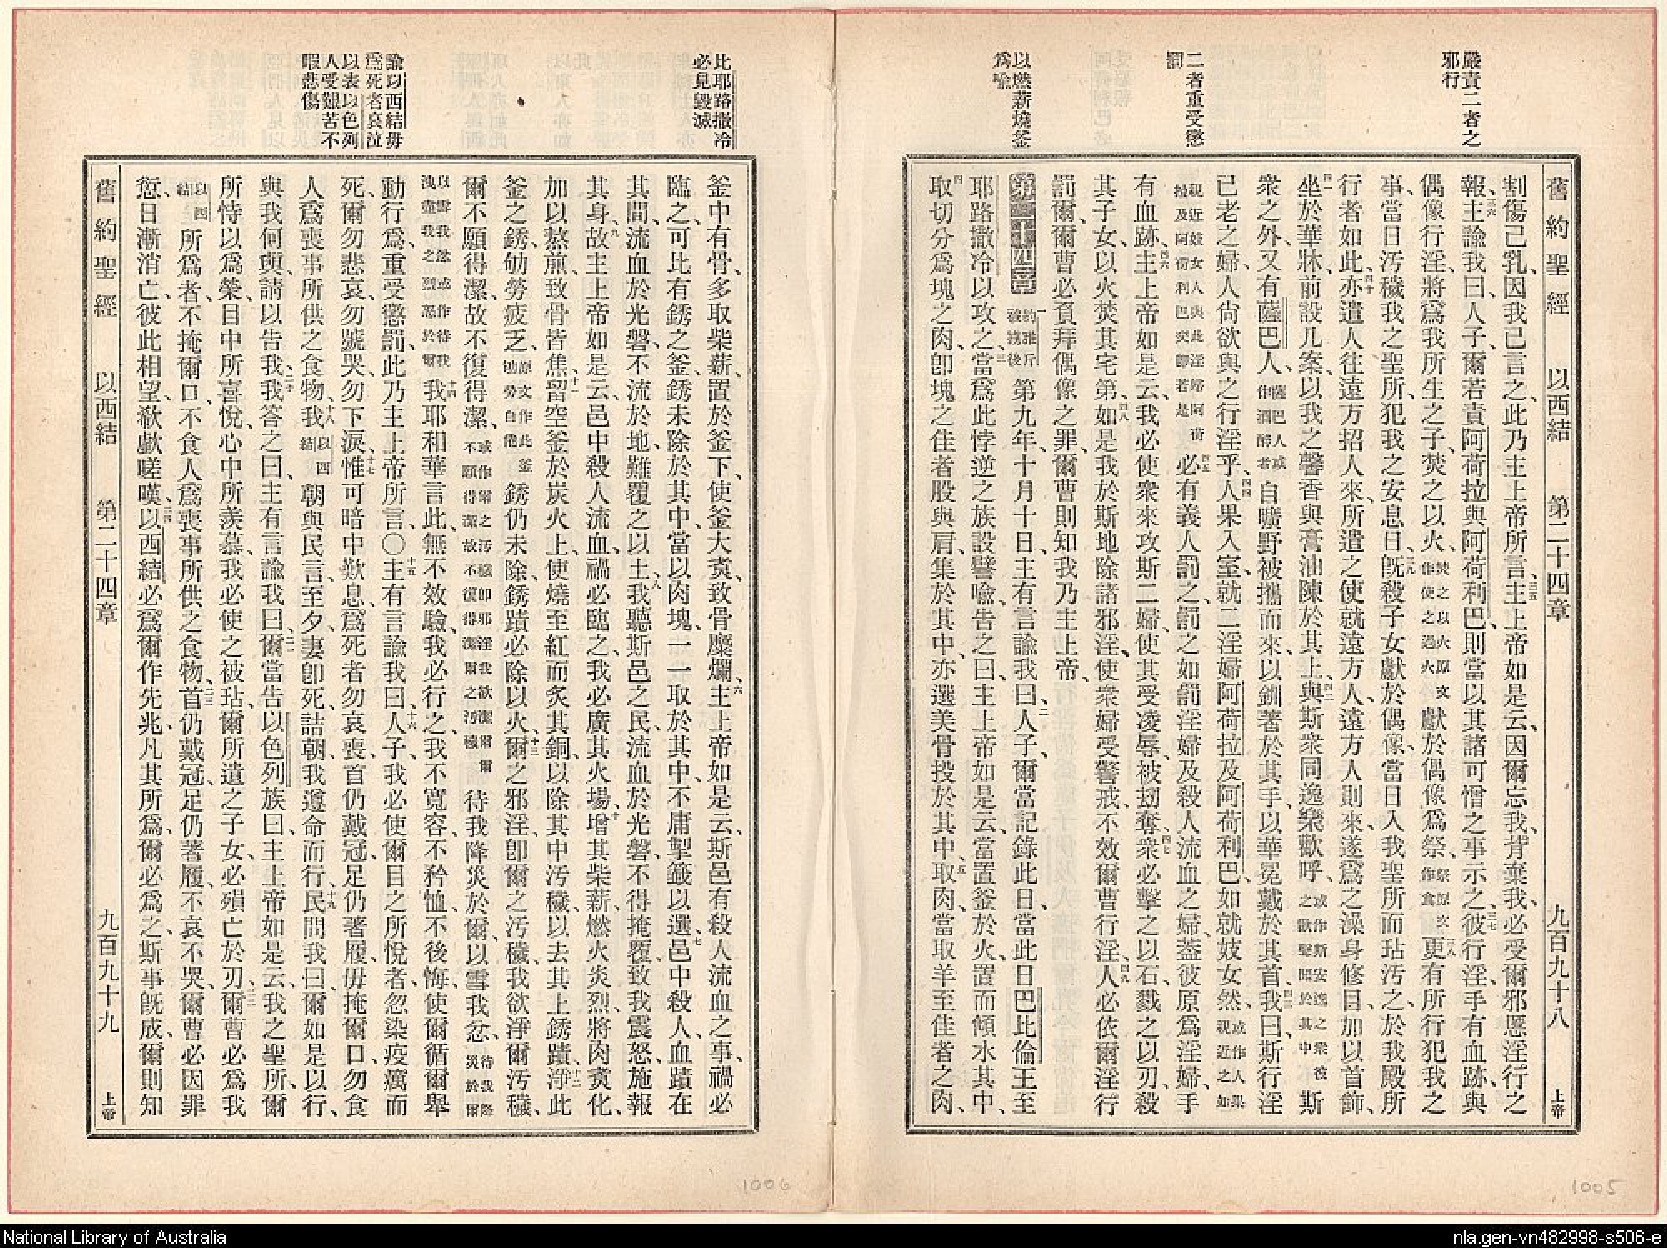 嚴責二者之
邪行
二者重受懲
罰
以燃薪燒釜
爲喩
舊約聖經 以西結 第二十四章 九百九十八 上帝
割傷己乳、因我已言之、此乃主上帝所言、三五主上帝如是云、因爾忘我、背棄我、必受爾邪慝淫行之
報、三六主諭我曰、人子、爾若責阿荷拉與阿荷利巴、則當以其諸可憎之事示之、三七彼行淫、手有血跡、與
偶像行淫、將爲我所生之子、焚之以火、獻於偶像爲祭、三八更有所行犯我之
事、當日汚穢我之聖所、犯我之安息日、三九旣殺子女獻於偶像、當日入我聖所而玷汚之、於我殿所
行者如此、四十亦遣人往遠方招人來、所遣之使就遠方人、遠方人則來、遂爲之澡身修目、加以首飾、
四一坐於華牀、前設几案、以我之馨香與膏油陳於其上、四二與斯衆同逸樂歡呼、斯
衆之外、又有薩巴人、自曠野被攜而來、以釧著於其手、以華冕戴於其首、四三我曰、斯行淫
已老之婦、人尚欲與之行淫乎、四四人果入室、就二淫婦阿荷拉及阿荷利巴、如就妓女然、
四五必有義人罰之、罰之如罰淫婦及殺人流血之婦、蓋彼原爲淫婦、手
有血跡、四六主上帝如是云、我必使衆來攻斯二婦、使其受凌辱、被刧奪、四七衆必擊之以石、戮之以刃、殺
其子女、以火焚其宅第、四八如是我於斯地除諸邪淫、使衆婦受警戒、不效爾曹行淫、四九人必依爾淫行
罰爾、爾曹必負拜偶像之罪、爾曹則知我乃主上帝、
第二十四章 一第九年十月十日、主有言諭我曰、二人子、爾當記錄此日、當此日巴比倫王至
耶路撒冷以攻之、三當爲此悖逆之族設譬喩、告之曰、主上帝如是云、當置釜於火、置而傾水其中、
四取切分爲塊之肉、卽塊之佳者、股與肩、集於其中、亦選美骨投於其中、五取肉、當取羊至佳者之肉、
比耶路撒冷
必見毀滅
諭以西結毋
爲死者哀泣
以表以色列
人受艱苦不
暇悲傷
釜中有骨、多取柴薪、置於釜下、使釜大煑、致骨糜爛、六主上帝如是云、斯邑有殺人流血之事、禍必
臨之、可比有銹之釜、銹未除於其中、當以肉塊一一取於其中、不庸掣籤以選、七邑中殺人、血蹟在
其間、流血於光磐、不流於地、難覆之以土、八我聽斯邑之民流血於光磐、不得掩覆、致我震怒施報
其身、九故主上帝如是云、邑中殺人流血、禍必臨之、我必廣其火場、十增其柴薪、燃火炎烈、將肉煑化、
加以熬煎、致骨皆焦、十一留空釜於炭火上、使燒至紅而炙其銅、以除其中汚穢、以去其上銹蹟、十二淨此
釜之銹、劬勞疲乏、銹仍未除、銹蹟必除以火、十三爾之邪淫、卽爾之汚穢、我欲淨爾汚穢、
爾不願得潔、故不復得潔、待我降災於爾、以雪我忿、
十四我耶和華言此、無不效驗、我必行之、我不寬容、不矜恤、不後悔、使爾循爾舉
動行爲、重受懲罰、此乃主上帝所言、〇十五主有言諭我曰、十六人子、我必使爾目之所悅者、忽染疫癘而
死、爾勿悲哀、勿號哭、勿下淚、十七惟可暗中歎息、爲死者勿哀喪、首仍戴冠、足仍著履、毋掩爾口、勿食
人爲喪事所供之食物、十八我以西結朝與民言、至夕妻卽死、詰朝我遵命而行、十九民問我曰、爾如是以行、
與我何與、請以告我、二十我答之曰、主有言諭我曰、二一爾當告以色列族曰、主上帝如是云、我之聖所、爾
所恃以爲榮、目中所喜悅、心中所羨慕、我必使之被玷、爾所遺之子女、必殞亡於刃、二二爾曹必爲我
以西結所爲者、不掩爾口、不食人爲喪事所供之食物、二三首仍戴冠、足仍著履、不哀不哭、爾曹必因罪
愆日漸消亡、彼此相望、欷歔嗟嘆、二四以西結必爲爾作先兆、凡其所爲、爾必爲之、斯事旣成、爾則知
舊約聖經 以西結 第二十四章 九百九十九 上帝
1006
1005
National Library of Australia
nla.gen-vn482998-s506-e